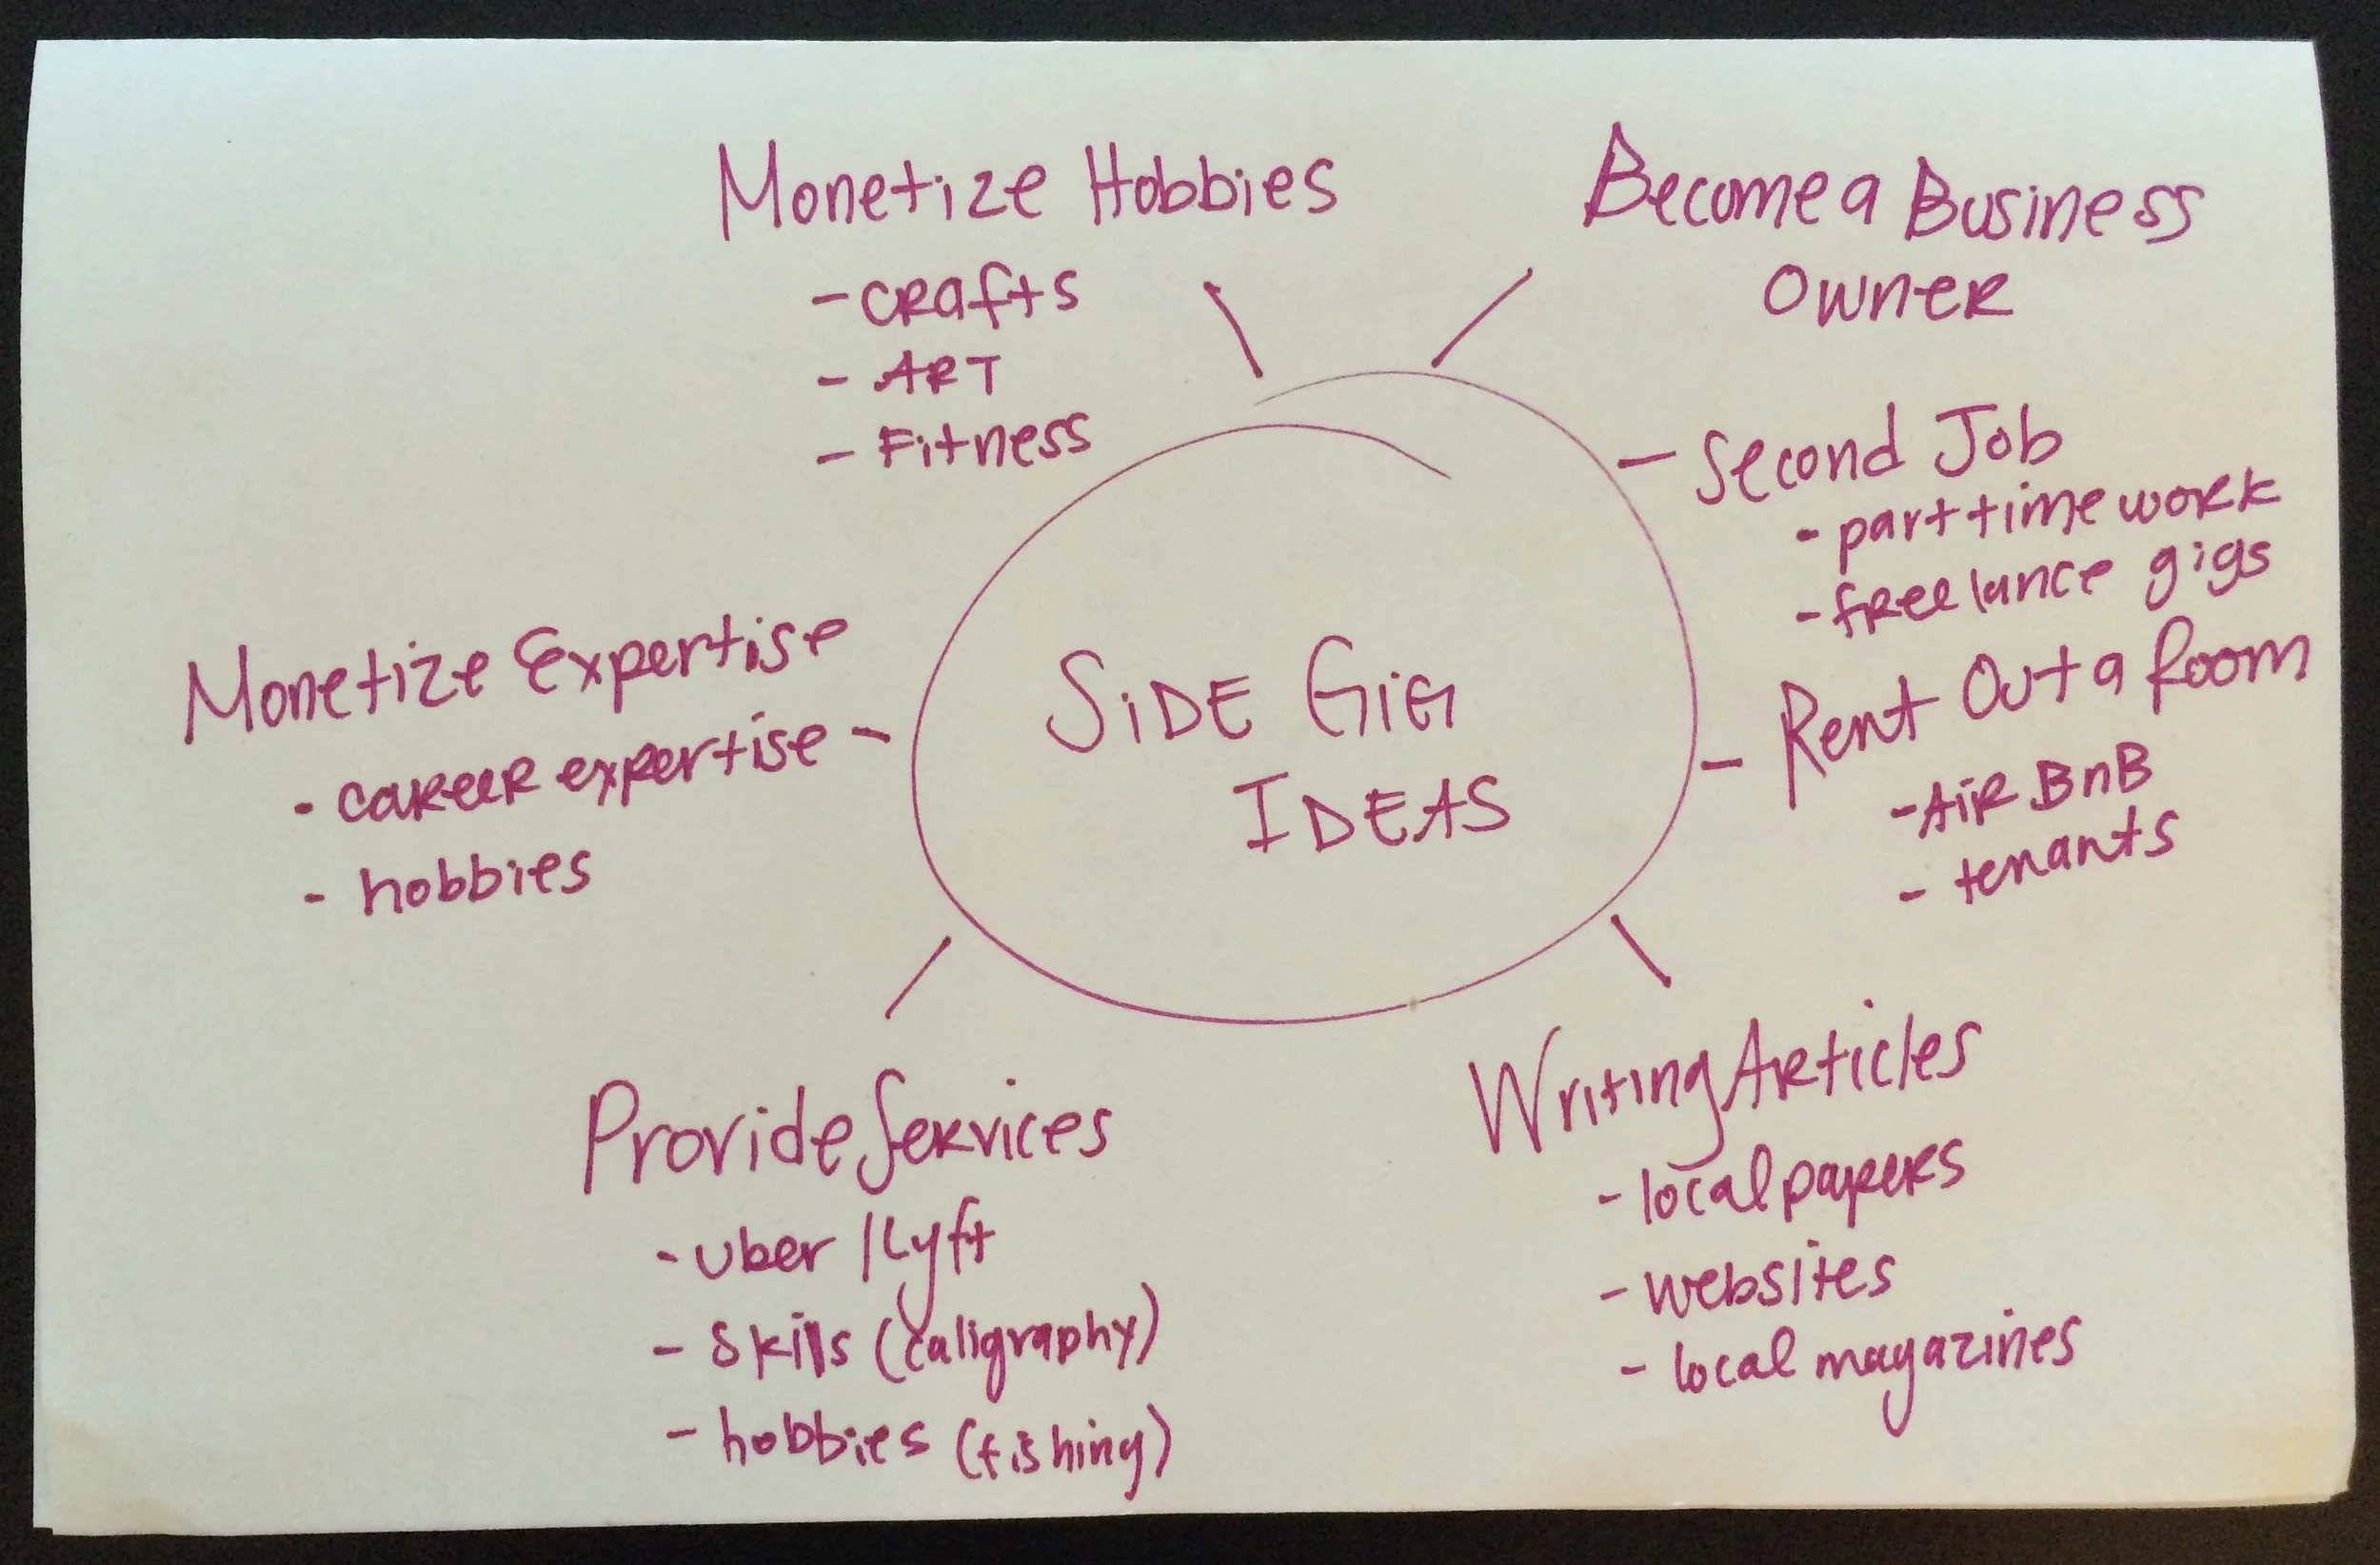 Monetize Hobbies
- crafts
- ART
- Fitness
Become a Business
Owner
- Second Job
- part time work
- freelance gigs
- Rent Out a Room
- AiR BnB
- tenants
Writing Articles
- local papers
- websites
- local magazines
Provide Services
- Uber / Lyft
- Skills (caligraphy)
- hobbies (fishing)
Monetize Expertise
- career expertise -
- hobbies
SiDE GiG
IDEAS